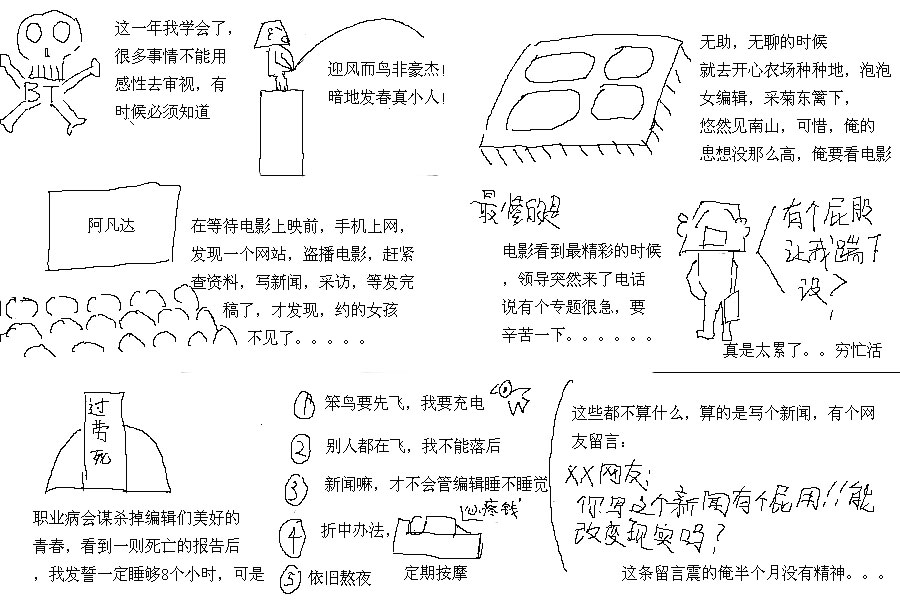 这一年我学会了，
很多事情不能用
感性去审视，有
时候必须知道
BT
迎风而鸟非豪杰！
暗地发春真小人！
无助，无聊的时候
就去开心农场种种地，泡泡
女编辑，采菊东篱下，
悠然见南山，可惜，俺的
思想没那么高，俺要看电影
阿凡达
在等待电影上映前，手机上网，
发现一个网站，盗播电影，赶紧
查资料，写新闻，采访，等发完
稿了，才发现，约的女孩
不见了。。。。。
最惨的是
电影看到最精彩的时候
，领导突然来了电话
说有个专题很急，要
辛苦一下。。。。。。
有个屁股
让我踹下
没？
真是太累了。。穷忙活
过劳死
职业病会谋杀掉编辑们美好的
青春，看到一则死亡的报告后
，我发誓一定睡够8个小时，可是
① 笨鸟要先飞，我要充电
② 别人都在飞，我不能落后
③ 新闻嘛，才不会管编辑睡不睡觉
④ 折中办法，
心疼钱
定期按摩
⑤ 依旧熬夜
这些都不算什么，算的是写个新闻，有个网
友留言：
XX网友：
你写这个新闻有个屁用!!能
改变现实吗？
这条留言震的俺半个月没有精神。。。